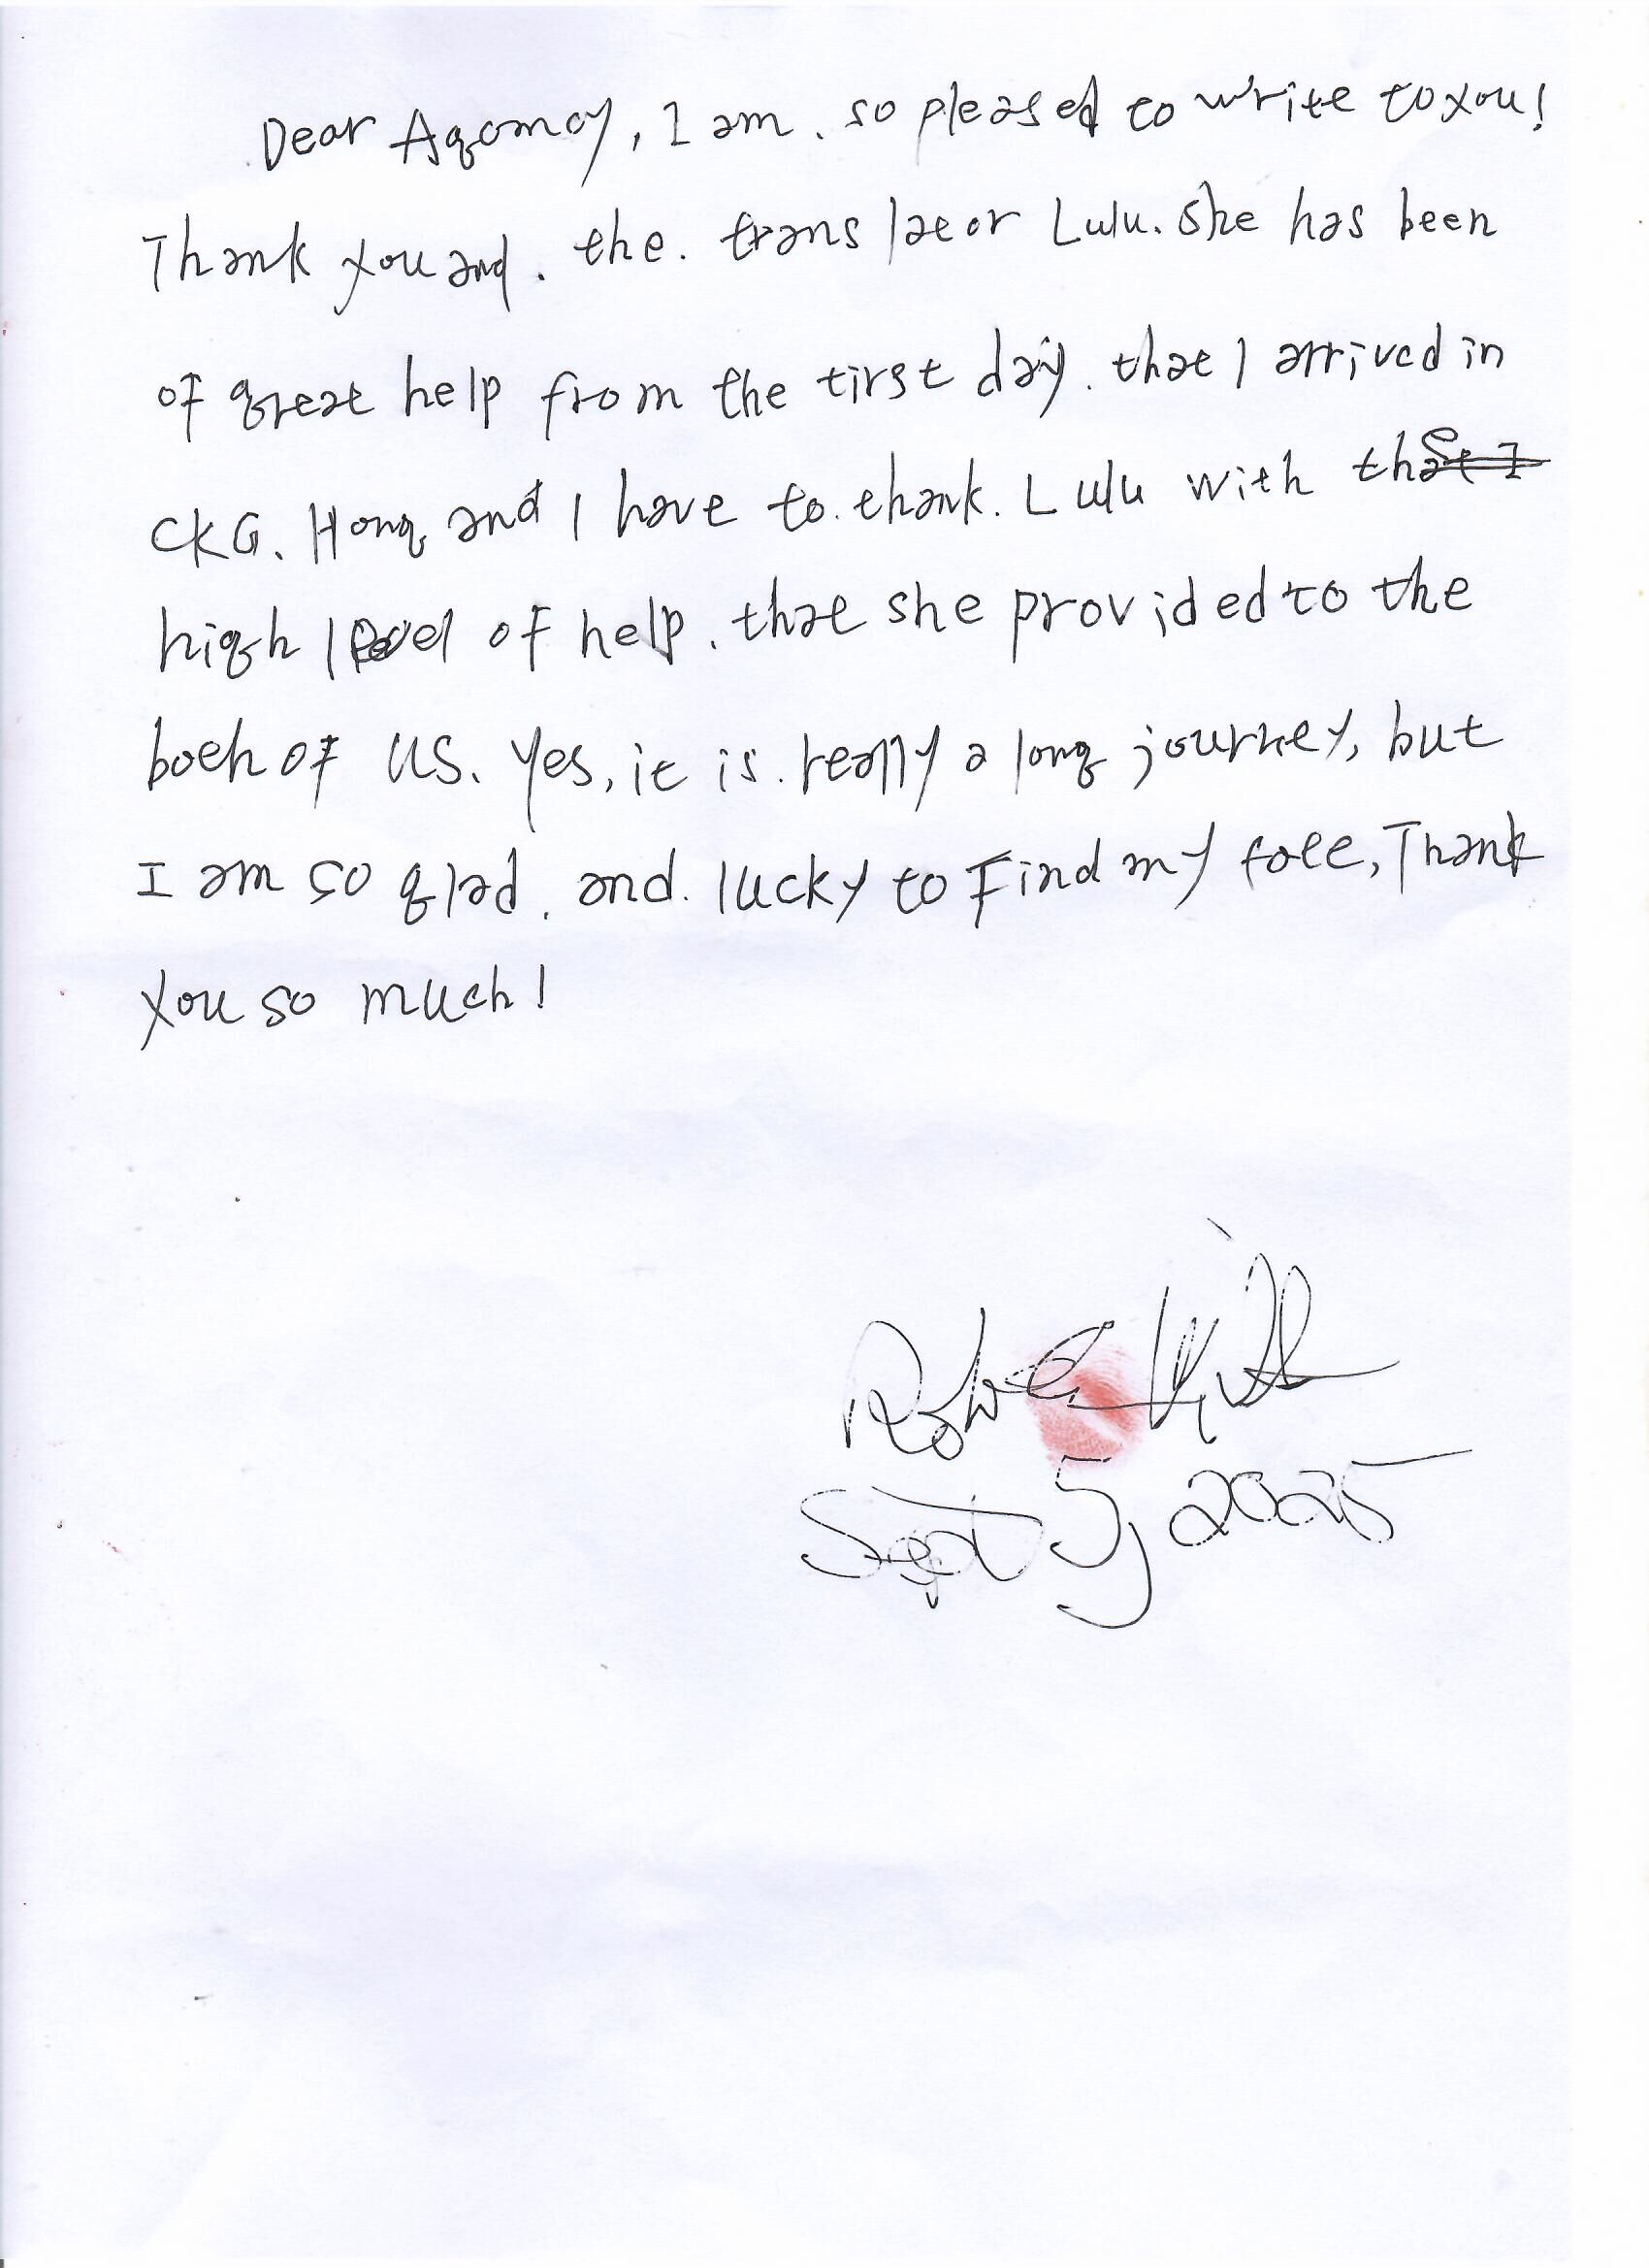 Dear Agomcy, I am. so pleased to write to you!
Thank you and. the. translator Lulu. She has been
of great help from the first day. that I arrived in
CKG. Hong and I have to. thank. Lulu with the
high level of help. that she provided to the
both of us. Yes, it is. really a long journey, but
I am so glad. and. lucky to Find my
Thank
you so much!
Sept 5, 2025